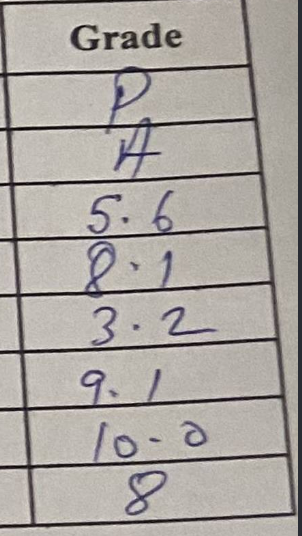 Grade
P
A
5.6
8.1
3.2
9.1
10-0
8